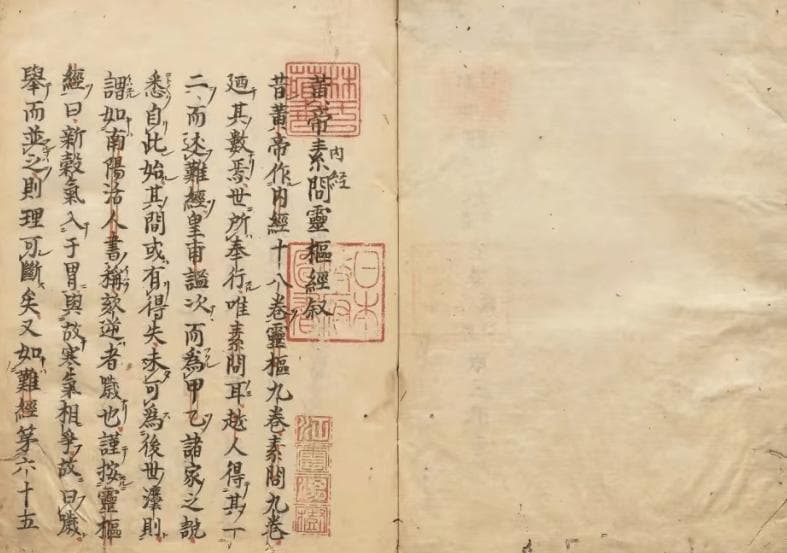 黄帝素問靈樞經叙
内経
昔黄帝作内經十八卷靈樞九卷素問九卷
廼其數焉世所奉行唯素問耳越人得其一
二而述難經皇甫謐次而為甲乙諸家之說
悉自此始其間或有得失未可為後世灋則
謂如南陽活人書稱欬逆者噦也謹按靈樞
經曰新穀氣入于胃與故寒氣相爭故曰噦
舉而並之則理可斷矣又如難經第六十五
林氏藏書
日本政府圖書
江雲渭樹